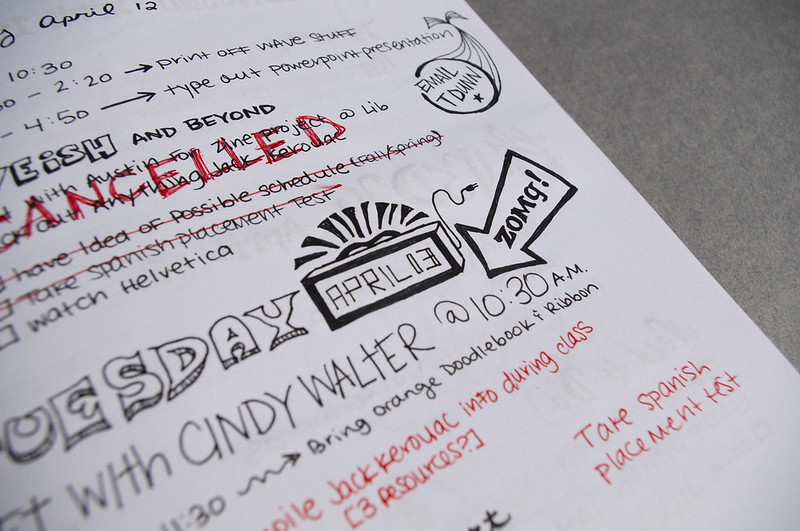 april 12
10:30
- 2:20 → print off wave stuff
- 4:50 → type out powerpoint presentation
EMAIL
T DUNN
AND BEYOND
with Austin for zine project @ Lib
CANCELLED
Anything Jack Kerouac
have Idea of Possible schedule (Fall/Spring)
Take Spanish Placement Test
watch Helvetica
ZOMG!
TUESDAY APRIL 13
WITH CINDY WALTER @ 10:30 A.M.
:30 Bring orange Doodlebook & Ribbon
Jack Kerouac info during class
[3 resources?]
Take Spanish
placement test